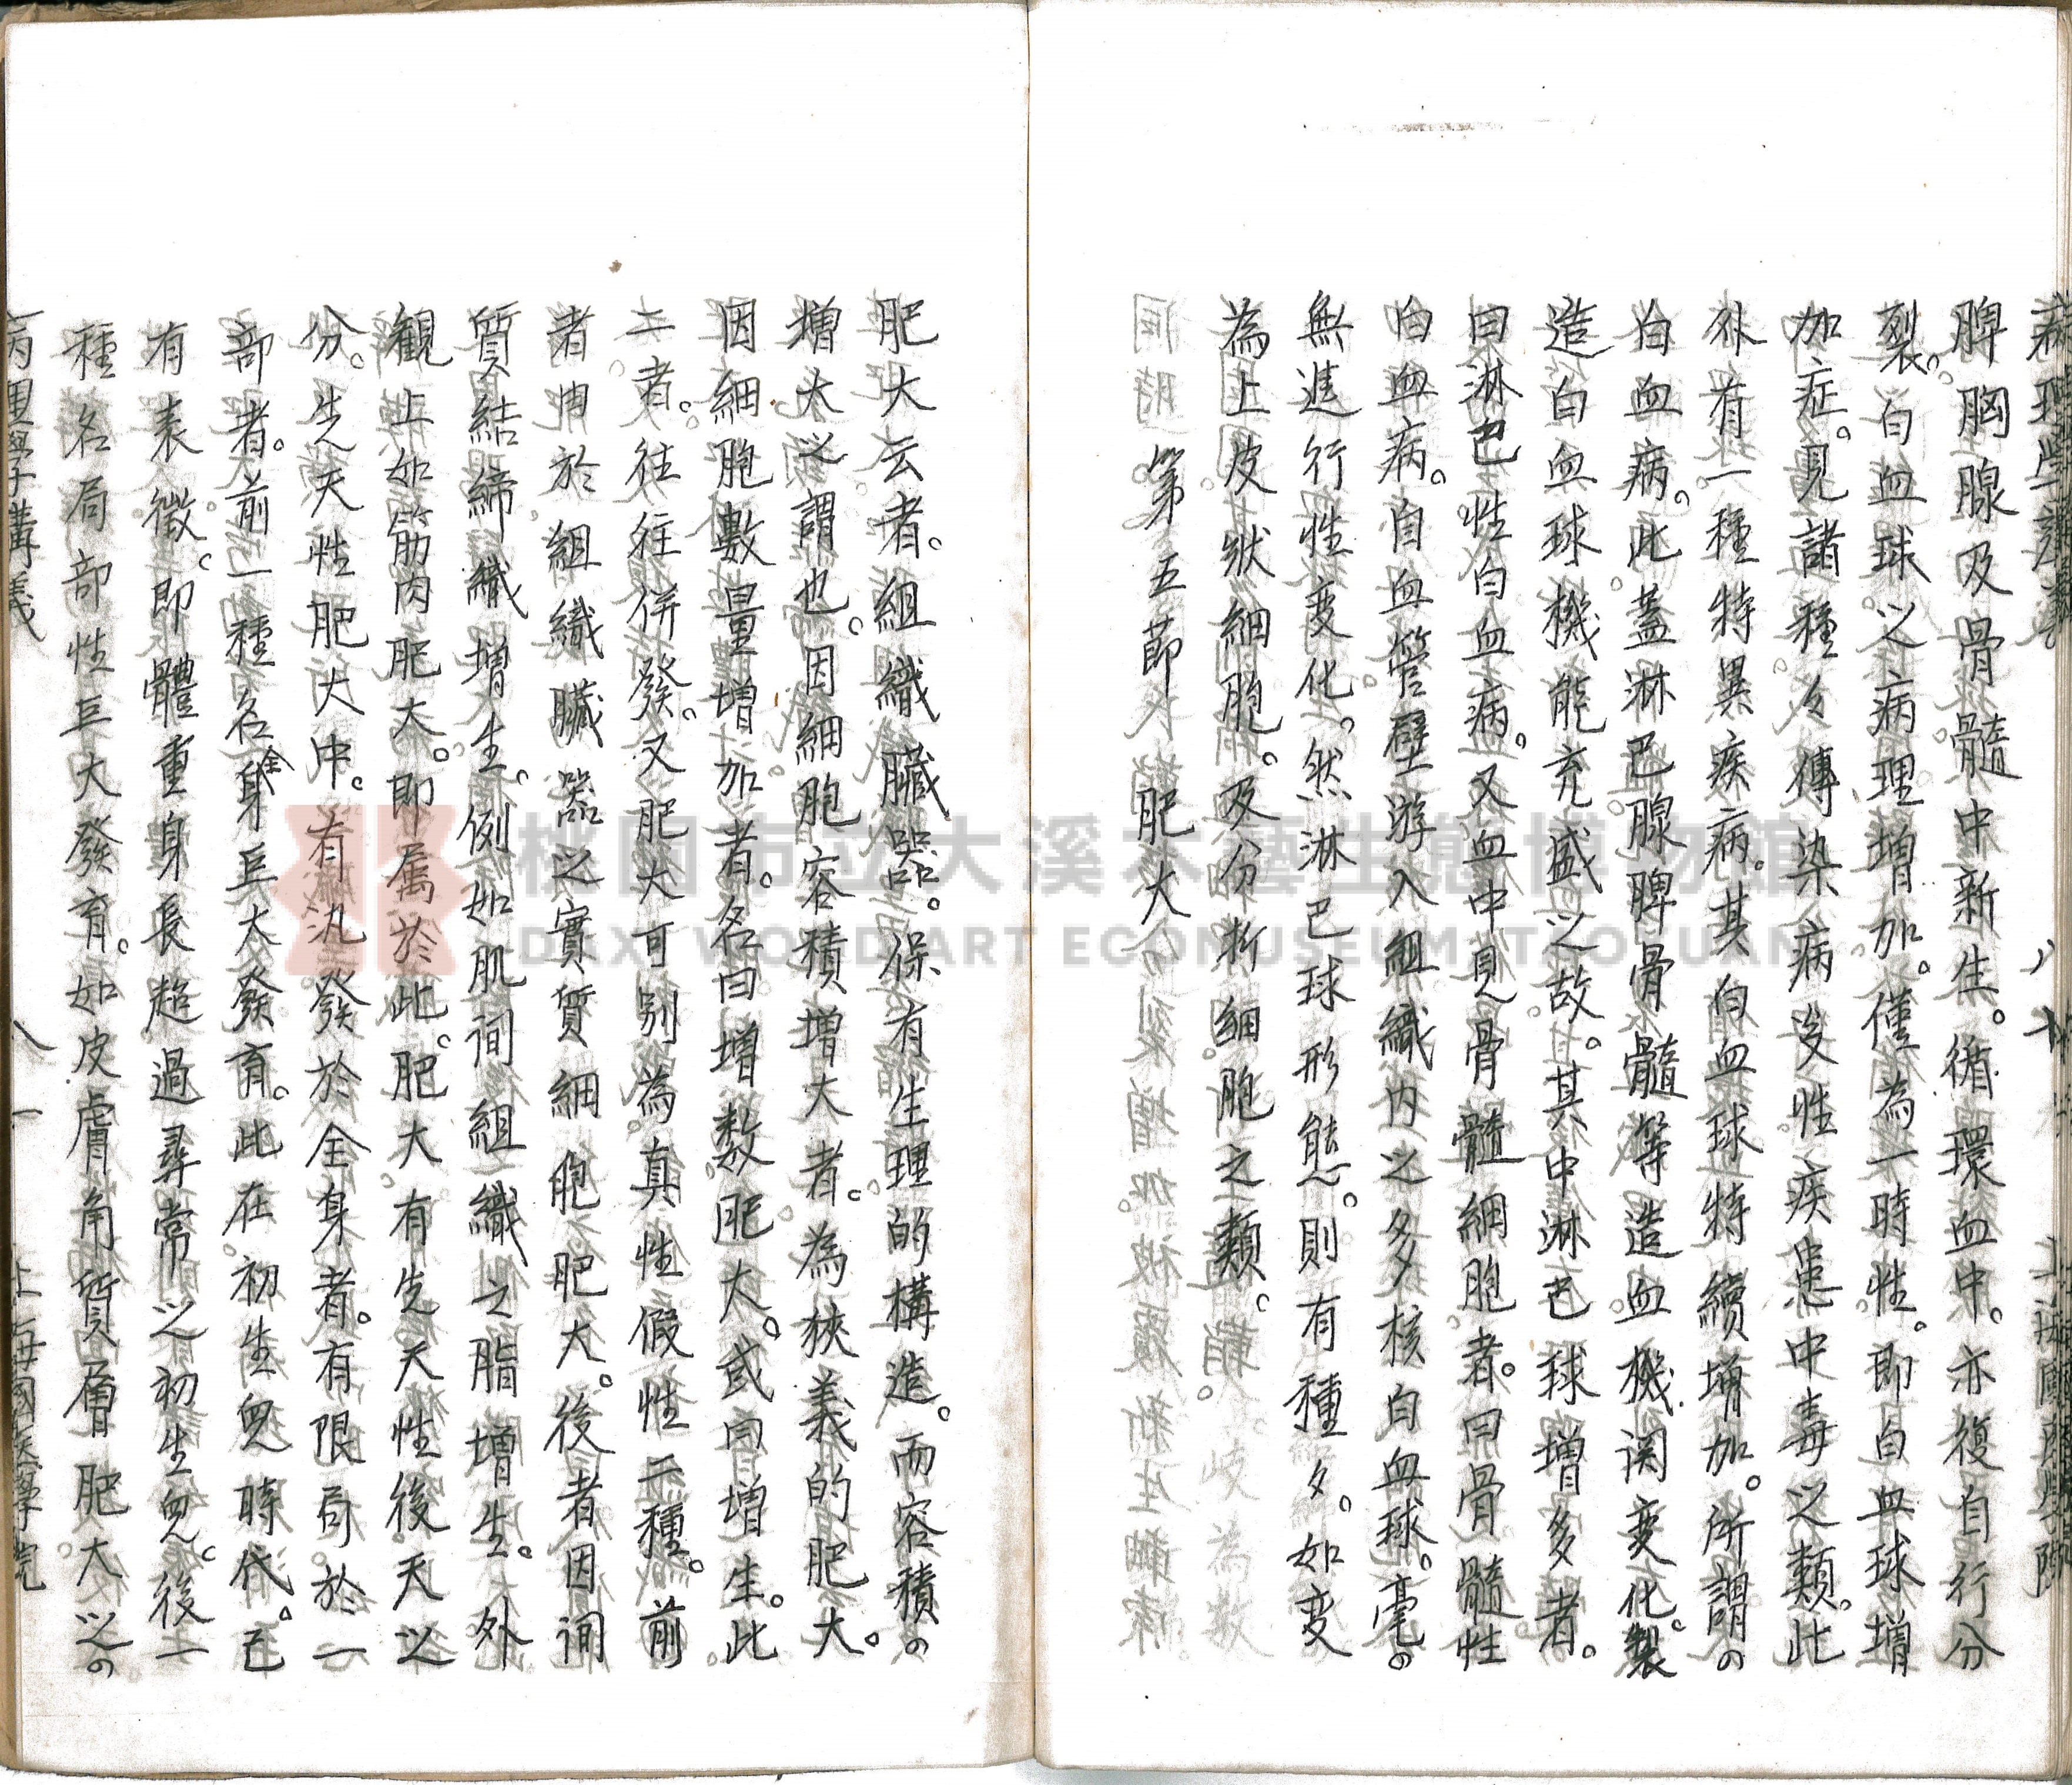 脾胸腺及骨髓中新生。循環血中。亦復自行分
裂。白血球之病理增加。僅為一時性。即白血球增
加症。見諸種々傳染病皮性疾患中毒之類。此
外有一種特異疾病。其白血球特續增加。所謂
白血病。此蓋淋巴腺脾骨髓等造血機関変化。製
造白血球機能充盛之故。其中淋巴球增多者。
曰淋巴性白血病。又血中見骨髓細胞者。曰骨髓性
白血病。自血管壁游入組織內之多核白血球。毫
無進行性变化。然淋巴球形態。則有種夕。如变
為上皮狀細胞。及分析細胞之類。
第五節 肥大
肥大云者。組織臟器。保有生理的構造。而容積
增大之謂也。因細胞容積增大者。為狹義的肥大。
因細胞數量增加者。名曰增数肥大。或曰增生。此
二者。往往併發。又肥大可別為真性假性二種。前
者由於組織臟器之實質細胞肥大。後者因间
質結締織增生。例如肌间組織之脂增生。外
観上如筋肉肥大。即属於此。肥大有先天性後天之
分。先天性肥大中。有汎發於全身者。有限局於一
部者。前一種名全身巨大發育。此在初生兒時代。已
有表徵。即體重身長超過尋常之初生兒。後一
種名局部性巨大發育。如皮膚角質層肥大之
病理學講義
八一
上海國醫學院
桃園市立大溪木藝生態博物館
DAXI WOOD ART ECOMUSEUM, TAOYUAN